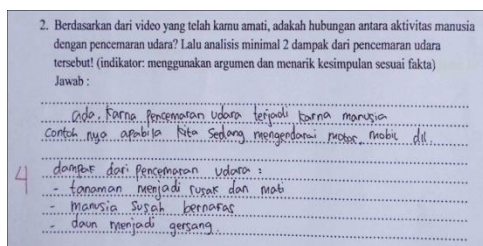 2. Berdasarkan dari video yang telah kamu amati, adakah hubungan antara aktivitas manusia
dengan pencemaran udara? Lalu analisis minimal 2 dampak dari pencemaran udara
tersebut! (indikator: menggunakan argumen dan menarik kesimpulan sesuai fakta)
Jawab :
ada, karna Pencemaran Udara terjadi karna manusia
Contoh nya apabila kita Sedang mengendarai motor, mobil dll.
dampak dari Pencemaran Udara :
4
- tanaman menjadi rusak dan mati
- manusia Susah bernafas
- daun menjadi gersang.